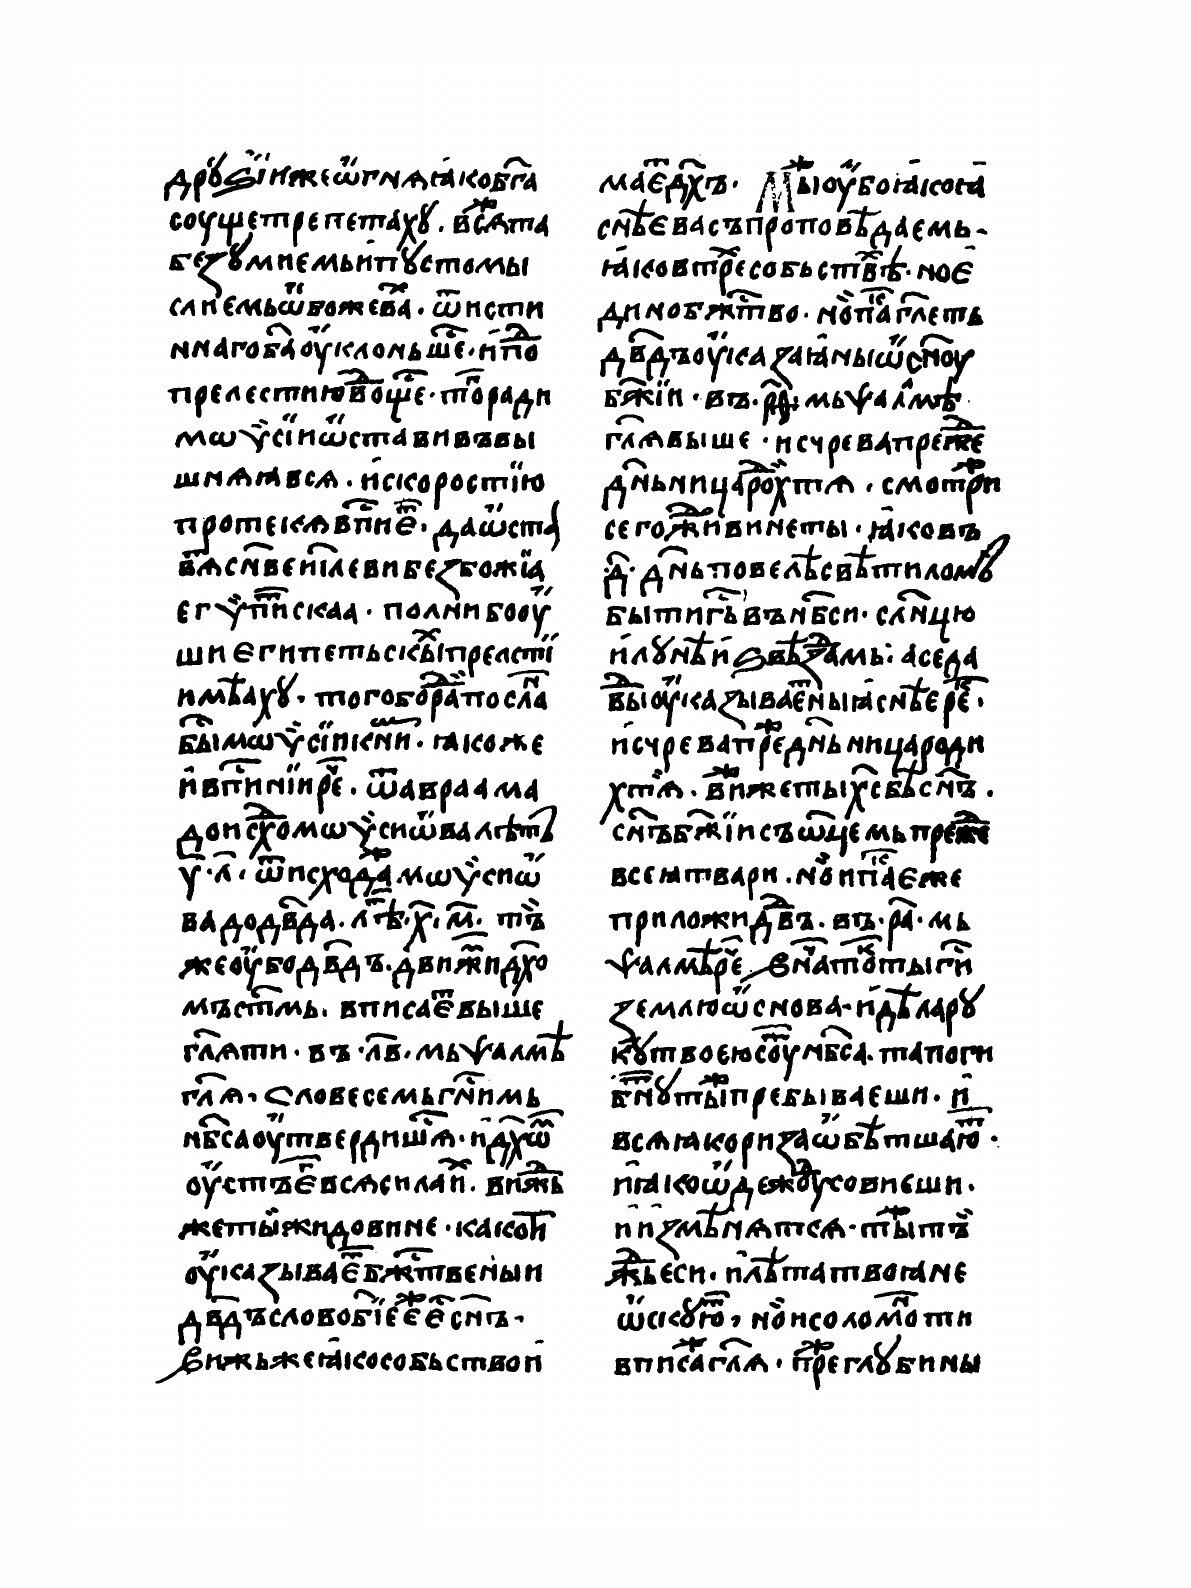 дрꙋѕїи же ѿ гнѧ ꙗко бг҃а
соуще трепетахꙋ . всѧ та
беꙁꙋмиемь и пꙋстомы
слиемь ѿвожева . ѿ исти
ннаго ба҃ оуклоньше . и по
прелестию воще . того ради
мѡѵсїи ѿставивъ вы
шнѧꙗ всѧ . и скоростїю
протекѧ впи е . да ѿста
вѧ сн҃ве ии҃леви беꙁбожїа
егѵпⸯтискаа . полни бо оу
ши египетьскы прелсті
имѣахꙋ . того бо ра посла
бы мѡѵсїи к ни . ꙗкоже
и в пи нїи ре . ѿ авраама
до исхо мѡѵси ѿва лѣтъ
у҃ . л҃ . ѿ исхода мѡѵсиѡ
ва до дв҃да . лѣ . х҃ . м҃ . тъ
же оубо дв҃дъ . движи дх҃о
мъ ст҃мь . вписае выше
гл҃ѧти . въ . л҃в . мь ѱалмѣ
гл҃ѧ . словесемь гн҃имь
нб҃са оутвердишѧ . и дх҃ѡ
оустъ е всѧ сила и . вижь
же ты жидовине . како ти
оукаꙁывае бжⷭ҇твеныи
дв҃дъ слово бж҃їе е е сн҃ъ .
вижь же ꙗко собьство и
мае дх҃ъ . Мы оубо ꙗко и на
сн҃ѣ е васъ проповѣдаемь .
ꙗко в тре собьствѣ . но е
дино бжⷭ҇тво . но паⷦ҇ гл҃еть
дв҃дъ оукаꙁаꙗны ѿ сн҃оу
бж҃їи . въ . р҃ѳ҃ . мь ѱалмѣ
гл҃ѧ выше . ис чрева преже
дн҃ьница рохтѧ . смотри
се го жидовине ты . ꙗко въ
.д҃. дн҃ь повелѣ свѣтиломъ
быти гь҃ въ нб҃си . слн҃цю
и лꙋнѣ и ѕвѣꙁамь . а се да
вы оукаꙁываеныꙗ сн҃ѣ ре .
ис чрева пре дн҃ьница роди
хтѧ . виже ты хс҃ъ бѣ сн҃ъ .
сн҃ъ бж҃їи съ ѿцемь преже
всеꙗ твари . но и паⷦ҇ еже
приложи дв҃ъ . въ . р҃а . мь
ѱалмѣ ре . в началото ты ги҃
ꙁемлю ѿснова . и дѣла рꙋ
кꙋ твоею соу нб҃са . та поги
бнꙋ ты пребываеши . и
всѧ ꙗко риꙁа ѡбѣтшаю .
и ꙗко ѡдежоу совиеши .
и иꙁмѣнѧтсѧ . ты тъ
жь еси . и лѣта твоꙗ не
ѡскꙋю . но и соломо ти
вписа гл҃ѧ . пре глꙋбины